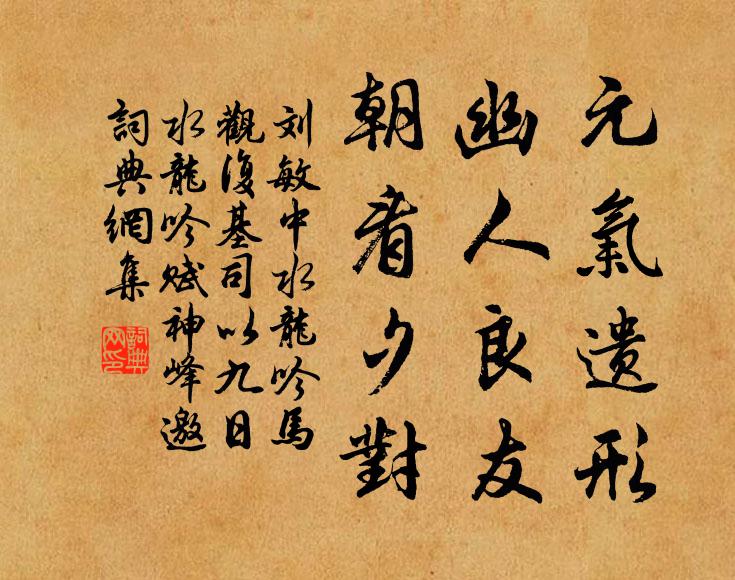 元氣遺形
幽人良友
朝看夕對
刘敏中水龍吟馬
觀復基司以九日
水龍吟赋神峰邀
詞典網集
詞典
网印